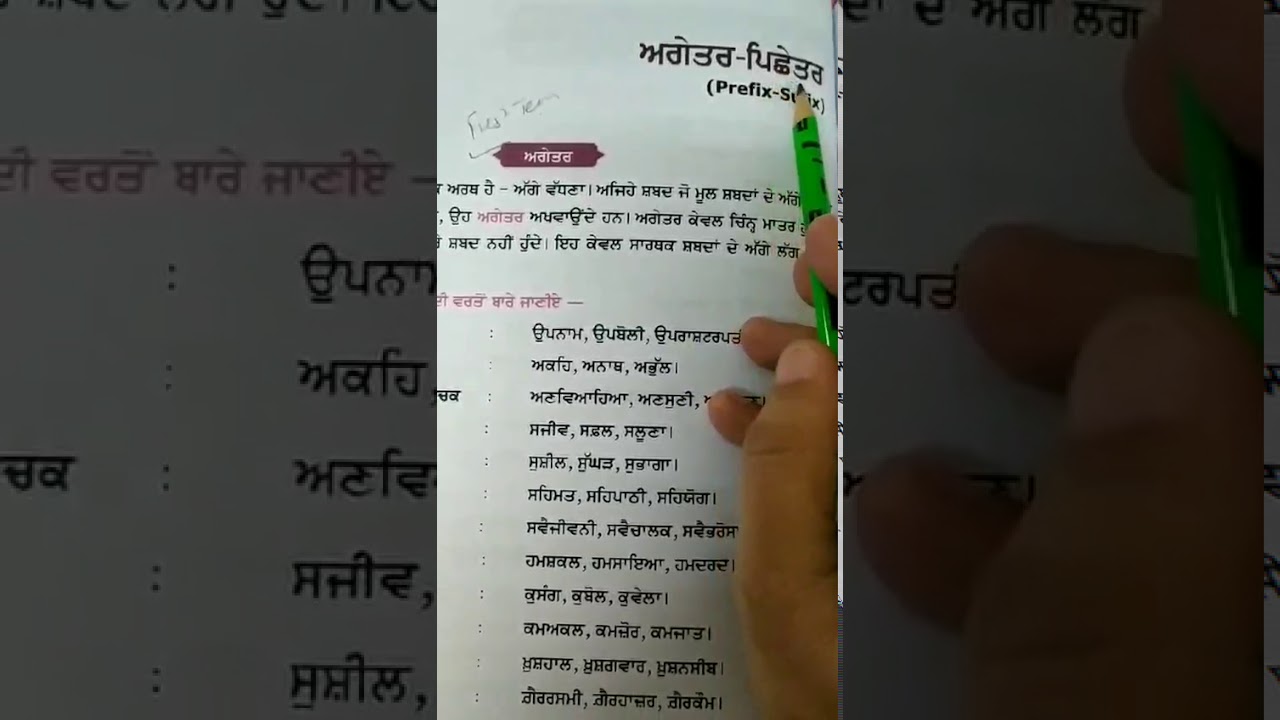 ਅਗੇਤਰ-ਪਿਛੇਤਰ
(Prefix-Suffix)
First Term
ਅਗੇਤਰ
ਅਰਥ ਹੈ – ਅੱਗੇ ਵੱਧਣਾ। ਅਜਿਹੇ ਸ਼ਬਦ ਜੋ ਮੂਲ ਸ਼ਬਦਾਂ ਦੇ ਅੱਗੇ
, ਉਹ ਅਗੇਤਰ ਅਖਵਾਉਂਦੇ ਹਨ। ਅਗੇਤਰ ਕੇਵਲ ਚਿੰਨ੍ਹ ਮਾਤਰ
ਸ਼ਬਦ ਨਹੀਂ ਹੁੰਦੇ। ਇਹ ਕੇਵਲ ਸਾਰਥਕ ਸ਼ਬਦਾਂ ਦੇ ਅੱਗੇ ਲੱਗ
ਦੀ ਵਰਤੋਂ ਬਾਰੇ ਜਾਣੀਏ —
: ਉਪਨਾਮ, ਉਪਬੋਲੀ, ਉਪਰਾਸ਼ਟਰਪਤੀ
: ਅਕਹਿ, ਅਨਾਥ, ਅਭੁੱਲ।
ਚਕ : ਅਣਵਿਆਹਿਆ, ਅਣਸੁਣੀ,
: ਸਜੀਵ, ਸਫ਼ਲ, ਸਲੂਣਾ।
: ਸੁਸ਼ੀਲ, ਸੁੱਘੜ, ਸੁਭਾਗਾ।
: ਸਹਿਮਤ, ਸਹਿਪਾਠੀ, ਸਹਿਯੋਗ।
: ਸਵੈਜੀਵਨੀ, ਸਵੈਚਾਲਕ, ਸਵੈਭਰੋਸਾ
: ਹਮਸ਼ਕਲ, ਹਮਸਾਇਆ, ਹਮਦਰਦ।
: ਕੁਸੰਗ, ਕੁਬੋਲ, ਕੁਵੇਲਾ।
: ਕਮਅਕਲ, ਕਮਜ਼ੋਰ, ਕਮਜਾਤ।
: ਖ਼ੁਸ਼ਹਾਲ, ਖ਼ੁਸ਼ਗਵਾਰ, ਖ਼ੁਸ਼ਨਸੀਬ।
: ਗ਼ੈਰਰਸਮੀ, ਗ਼ੈਰਹਾਜ਼ਰ, ਗ਼ੈਰਕੌਮ।